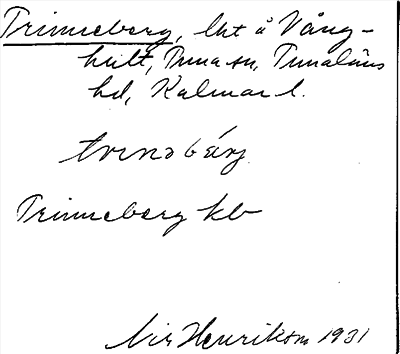 Trinneberg, lht å Vång-
hult, Tuna sn, Tunaläns
hd, Kalmar l.
Trinneberg kb
Nils Henrikson 1931